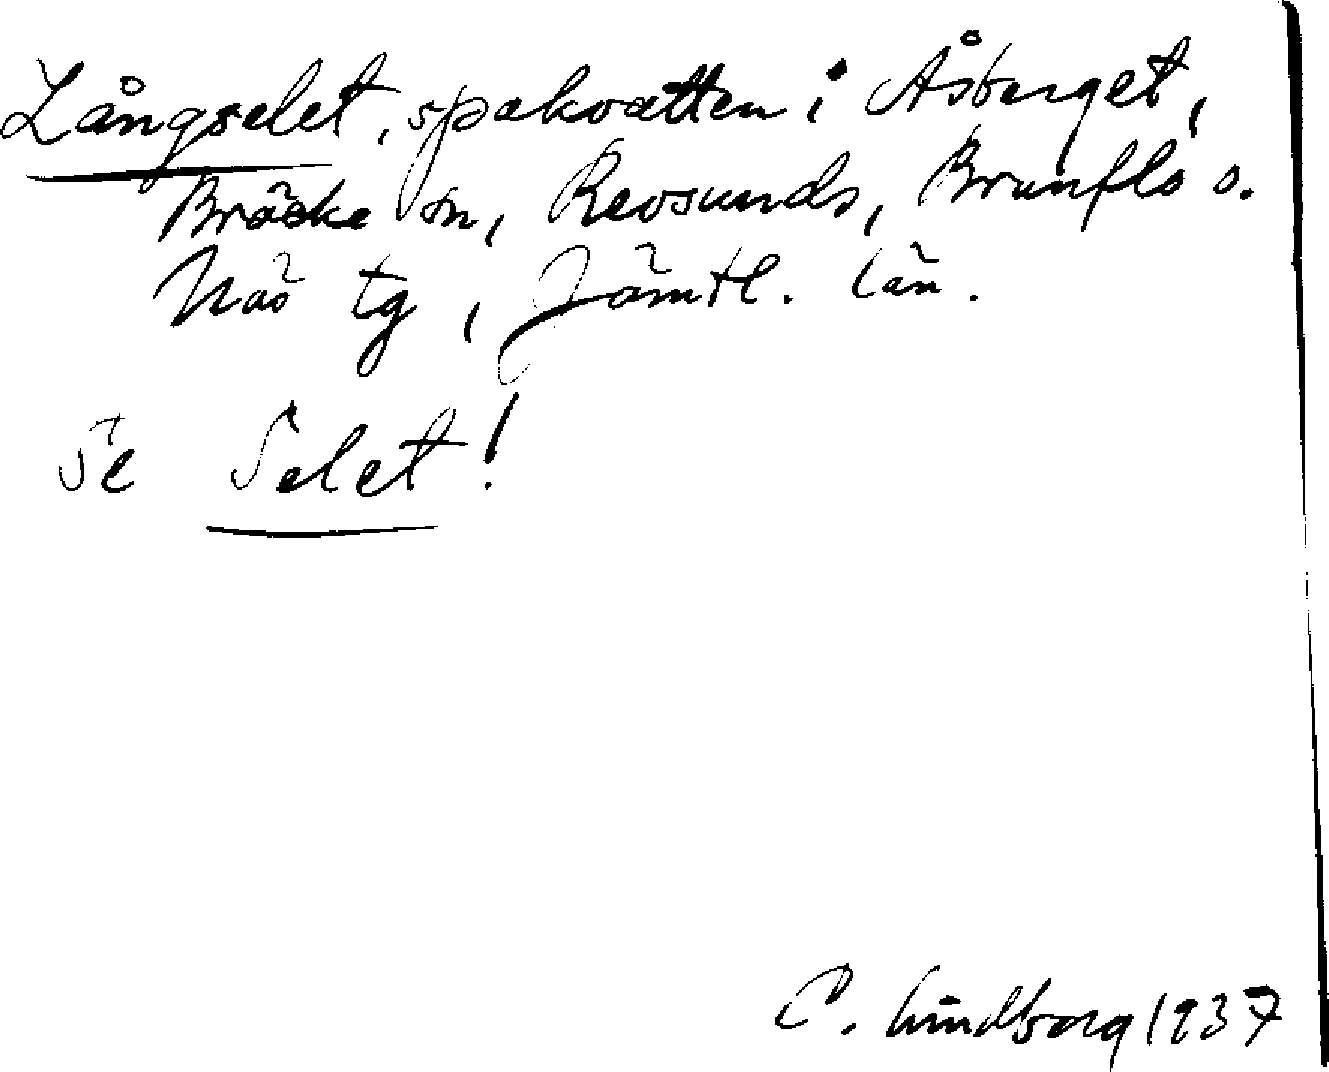 Långselet, spakvatten i Åsberget,
Bräcke sn, Revsunds, Brunflo o.
Näs tg, Jämtl. län.
Se Selet!
C. Lindborg 1937